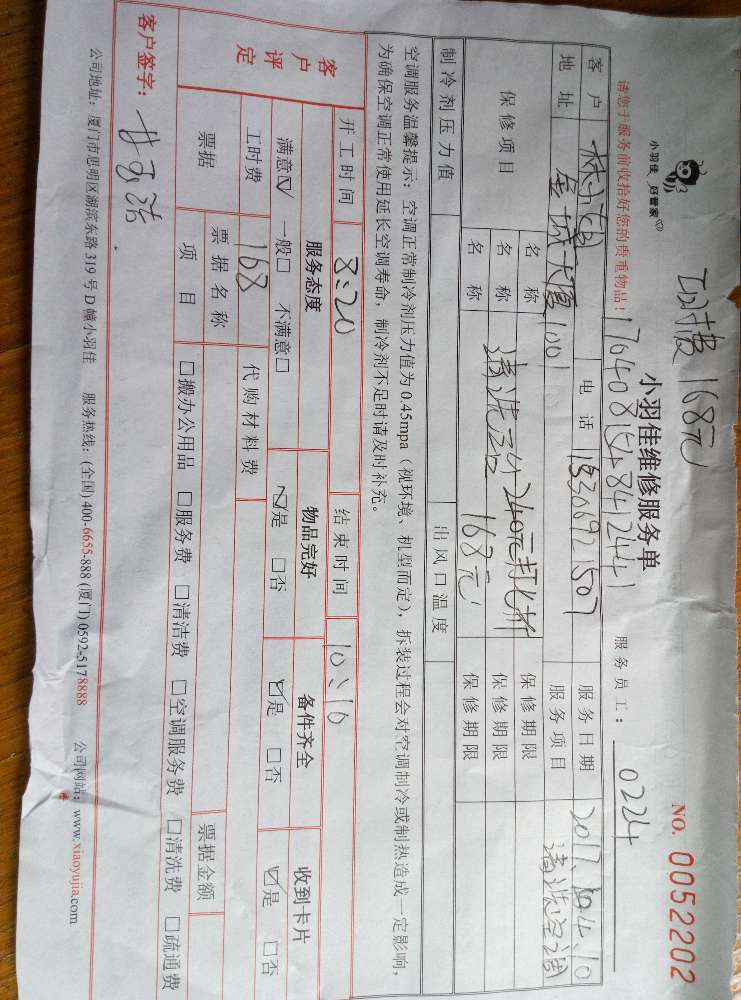 工时费 168元
小羽佳 好管家
小羽佳维修服务单
NO. 0052202
请您于服务前收拾好您的贵重物品!
17640815484244 1
服务员工: 0224
客户
电话 15306921507
服务日期 2017. 4.10
地址 金城大厦1001
服务项目 清洗空调
保修项目
名称
保修期限
名称 清洗 240元打七折
保修期限
名称 168元
保修期限
制冷剂压力值
出风口温度
空调服务温馨提示:空调正常制冷剂压力值为 0.45mpa(视环境、机型而定),拆装过程会对空调制冷或制热造成一定影响,
为确保空调正常使用延长空调寿命,制冷剂不足时请及时补充。
开工时间 8:20 结束时间 10:10
客户评定
服务态度 物品完好 备件齐全 收到卡片
满意☑ 一般□ 不满意□ ☑是 □否 ☑是 □否 ☑是 □否
工时费 168 代购材料费
票据 票据名称 票据金额
项目 □搬办公用品 □服务费 □清洁费 □空调服务费 □清洗费 □疏通费
客户签字:
公司地址:厦门市思明区湖滨东路 319 号 D 幢小羽佳 服务热线:(全国) 400-6655-888 (厦门) 0592-5178888 公司网站:www.xiaoyujia.com